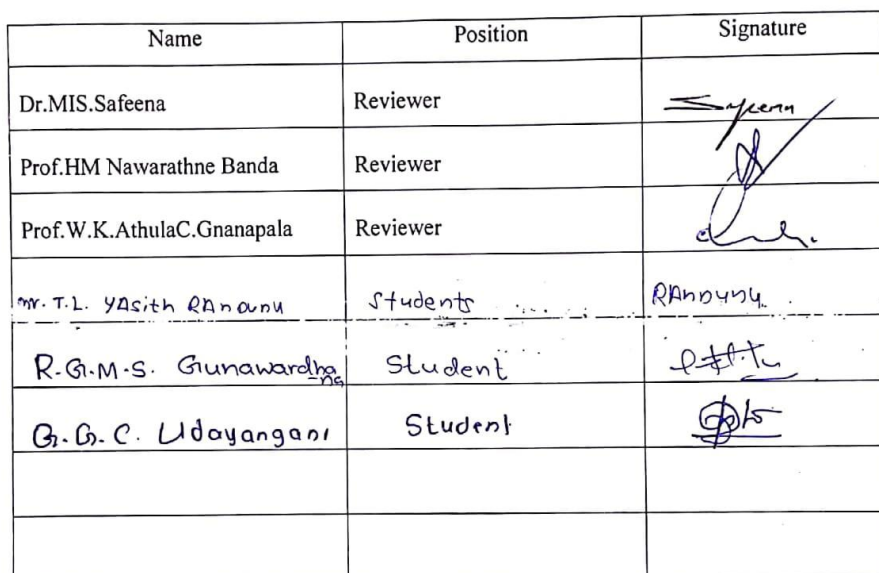 Name Position Signature
Dr.MIS.Safeena Reviewer
Prof.HM Nawarathne Banda Reviewer
Prof.W.K.AthulaC.Gnanapala Reviewer
Mr. T.L. YAsith RAnduNu Students RAnDUNU.
R.G.M.S. Gunawardhana Student
G.G.C. Udayangani Student